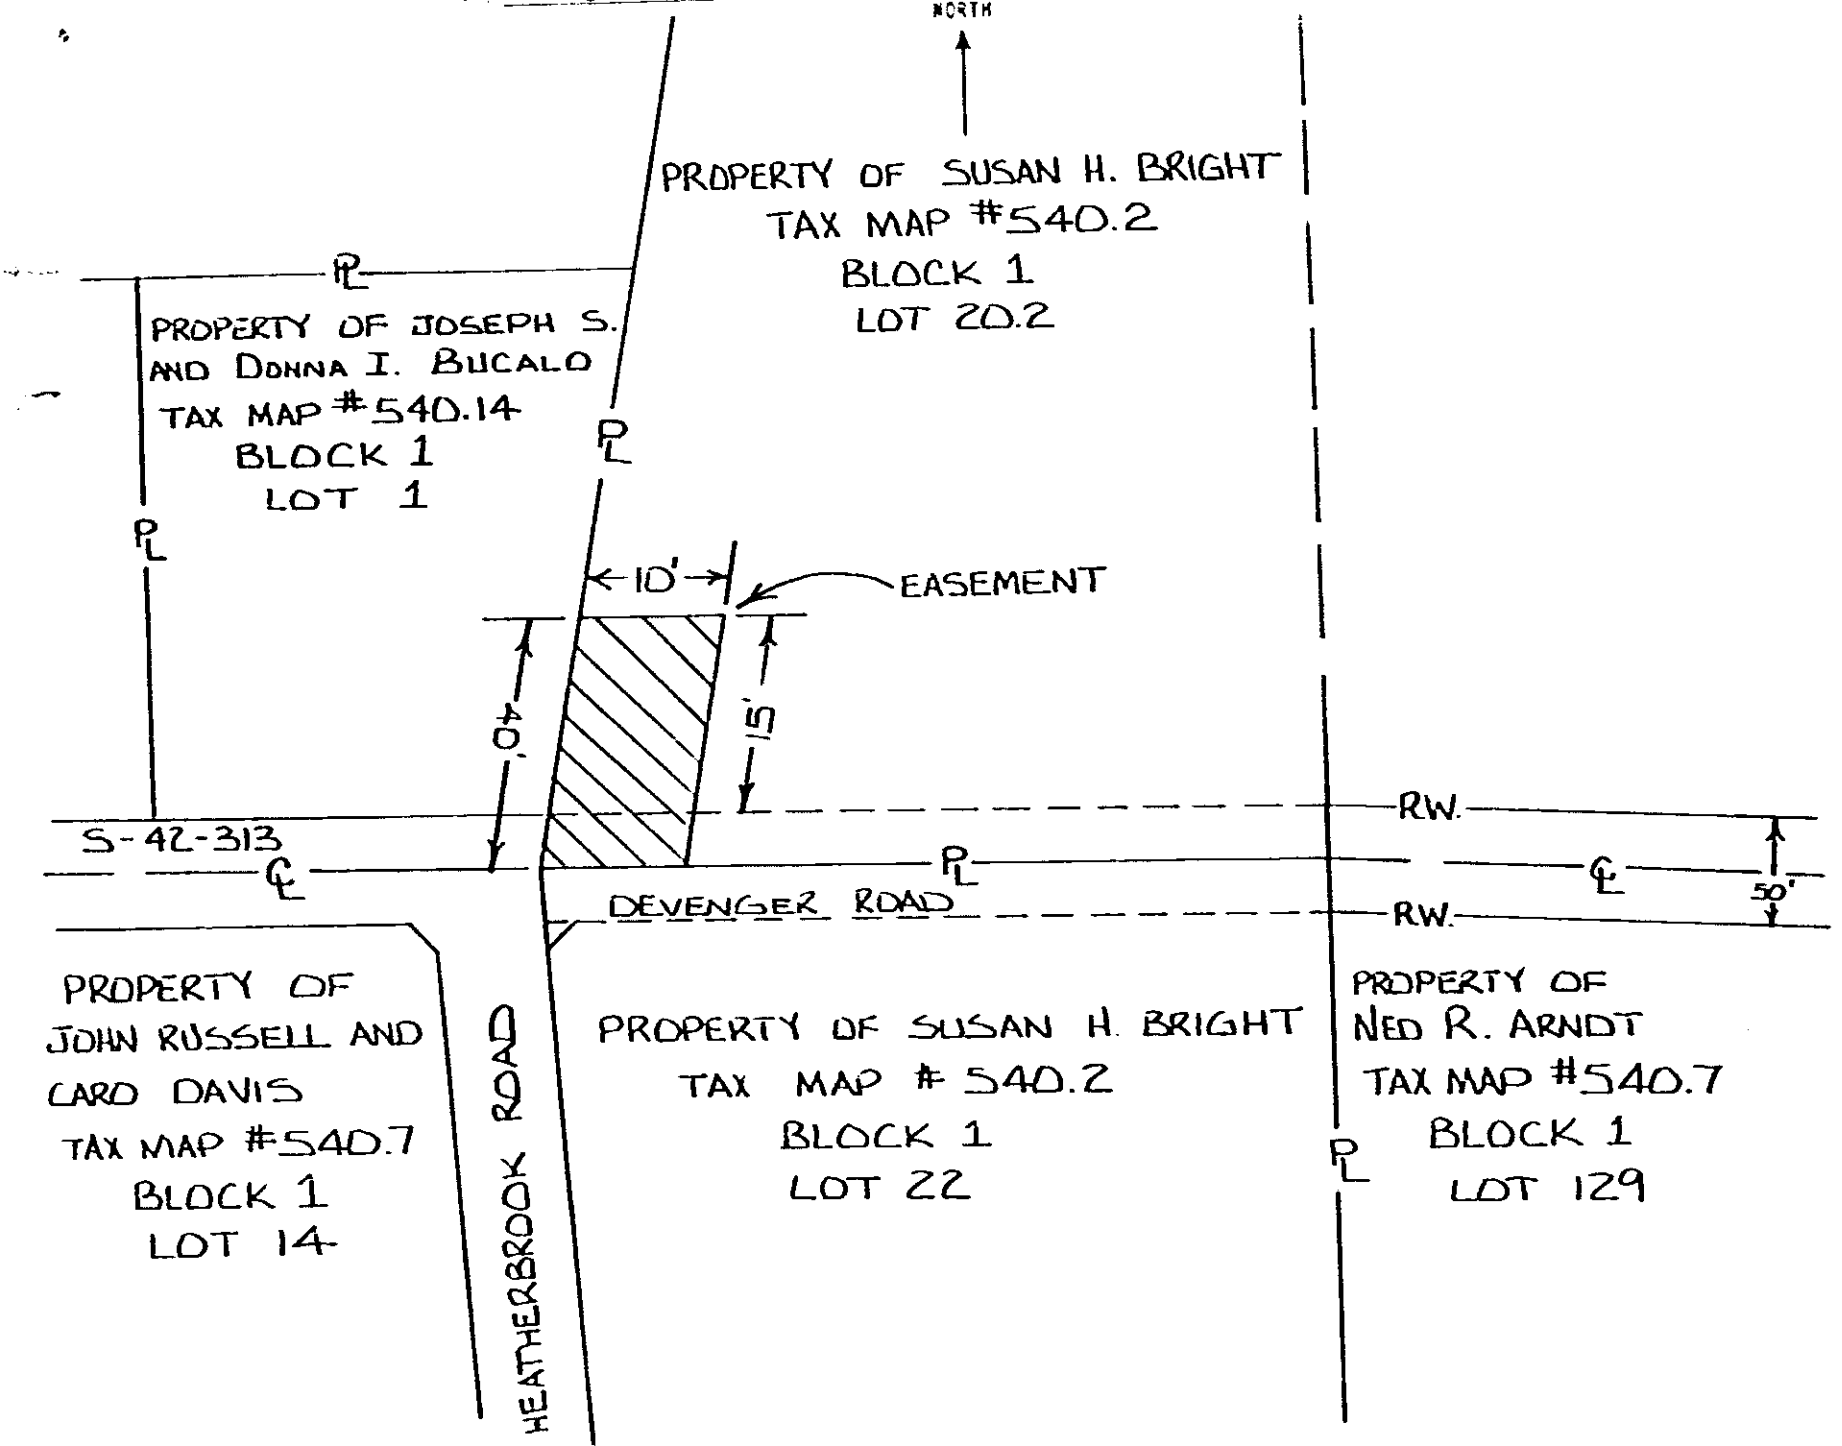 NORTH
PROPERTY OF SUSAN H. BRIGHT
TAX MAP #540.2
BLOCK 1
LOT 20.2
PL
PROPERTY OF JOSEPH S.
AND DONNA I. BUCALO
TAX MAP #540.14
BLOCK 1
LOT 1
PL
PL
10'
EASEMENT
40'
15'
RW.
S-42-313
CL
PL
CL
50'
DEVENGER ROAD
RW.
PROPERTY OF
JOHN RUSSELL AND
CARO DAVIS
TAX MAP #540.7
BLOCK 1
LOT 14
HEATHERBROOK ROAD
PROPERTY OF SUSAN H. BRIGHT
TAX MAP # 540.2
BLOCK 1
LOT 22
PL
PROPERTY OF
NED R. ARNDT
TAX MAP #540.7
BLOCK 1
LOT 129